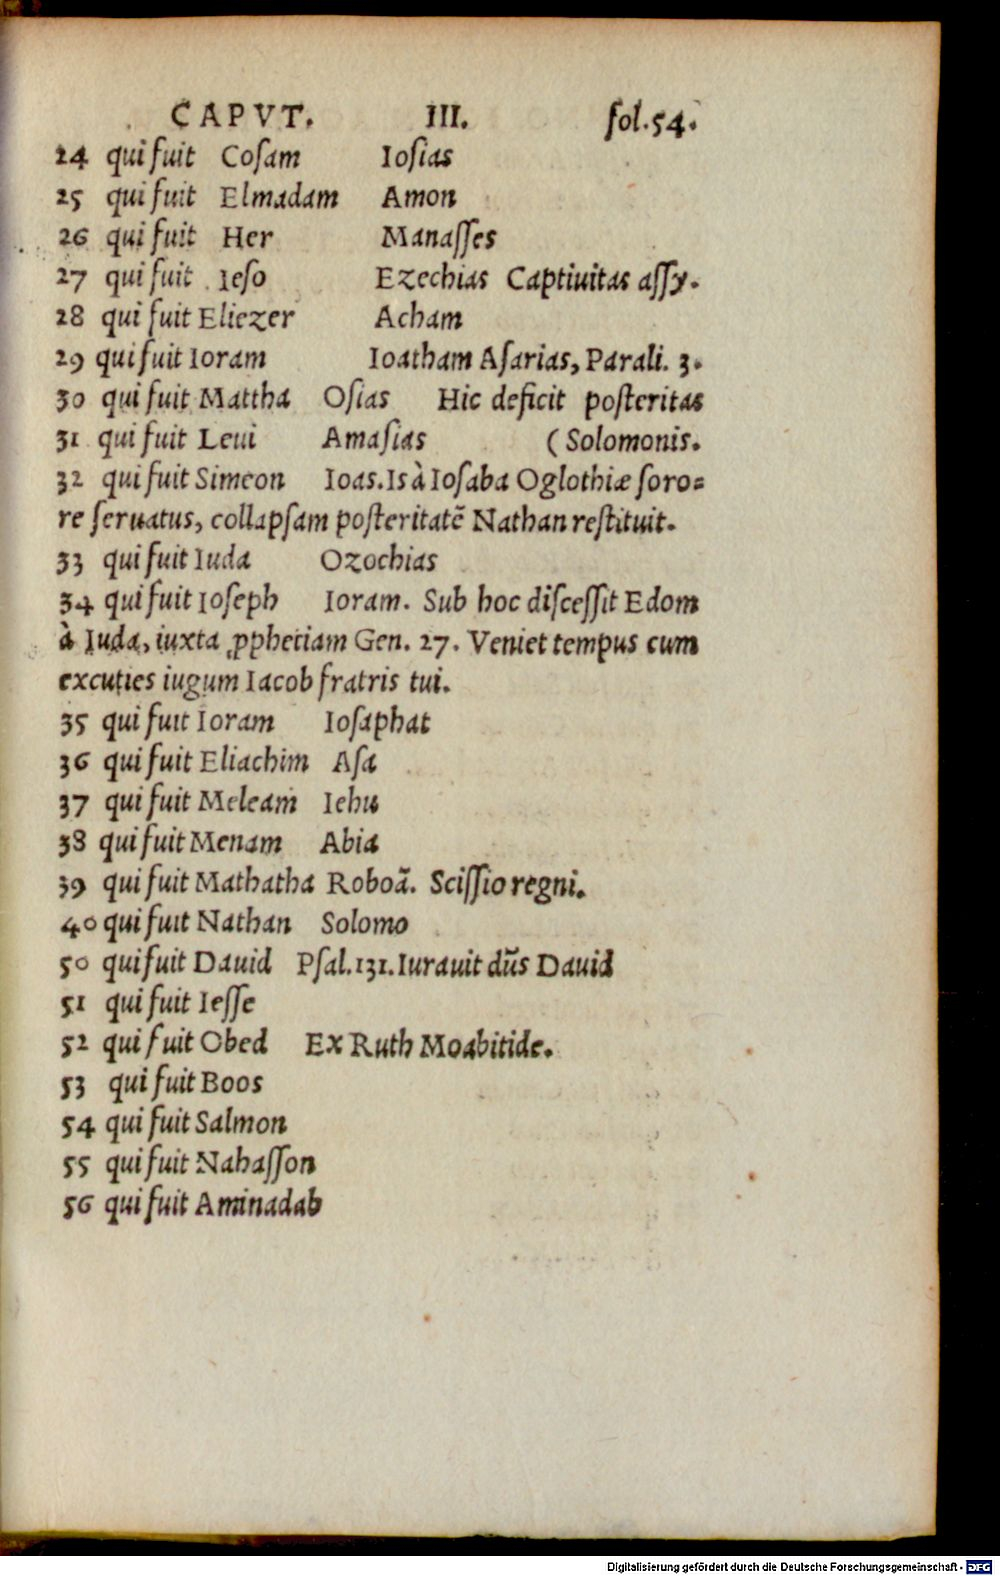 CAPVT. III. fol.54.
24 qui fuit Coſam Ioſias
25 qui fuit Elmadam Amon
26 qui fuit Her Manaſſes
27 qui fuit Ieſo Ezechias Captiuitas aſſy.
28 qui fuit Eliezer Acham
29 qui fuit Ioram Ioatham Aſarias, Parali. 3.
30 qui fuit Mattha Oſias Hic deficit poſteritas
31 qui fuit Leui Amaſias (Solomonis.
32 qui fuit Simeon Ioas. Is à Ioſaba Oglothiæ ſoro=
re ſeruatus, collapſam poſteritatẽ Nathan reſtituit.
33 qui fuit Iuda Ozochias
34 qui fuit Ioſeph Ioram. Sub hoc diſceſſit Edom
à Iuda, iuxta ꝓphetiam Gen. 27. Veniet tempus cum
excuties iugum Iacob fratris tui.
35 qui fuit Ioram Ioſaphat
36 qui fuit Eliachim Aſa
37 qui fuit Meleam Iehu
38 qui fuit Menam Abia
39 qui fuit Mathatha Roboã. Sciſſio regni.
40 qui fuit Nathan Solomo
50 qui fuit Dauid Pſal.131. Iurauit dñs Dauid
51 qui fuit Ieſſe
52 qui fuit Obed Ex Ruth Moabitide.
53 qui fuit Boos
54 qui fuit Salmon
55 qui fuit Nahaſſon
56 qui fuit Aminadab
Digitalisierung gefördert durch die Deutsche Forschungsgemeinschaft - DFG